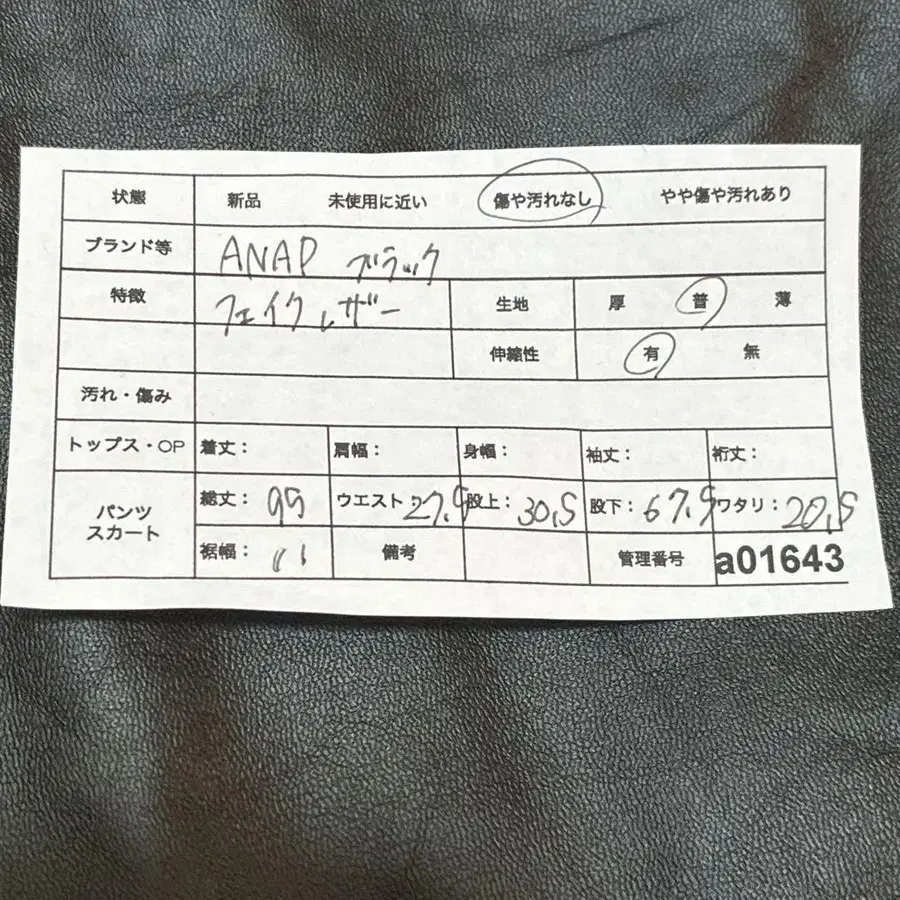 状態 新品 未使用に近い 傷や汚れなし やや傷や汚れあり
ブランド等 ANAP ブラック
特徴 フェイクレザー 生地 厚 普 薄
伸縮性 有 無
汚れ・傷み
トップス・OP 着丈： 肩幅： 身幅： 袖丈： 裄丈：
パンツ スカート 総丈： ウエスト： 27.5 股上： 30.5 股下： 67.5 ワタリ： 20.5
裾幅： 11 備考 管理番号 a01643